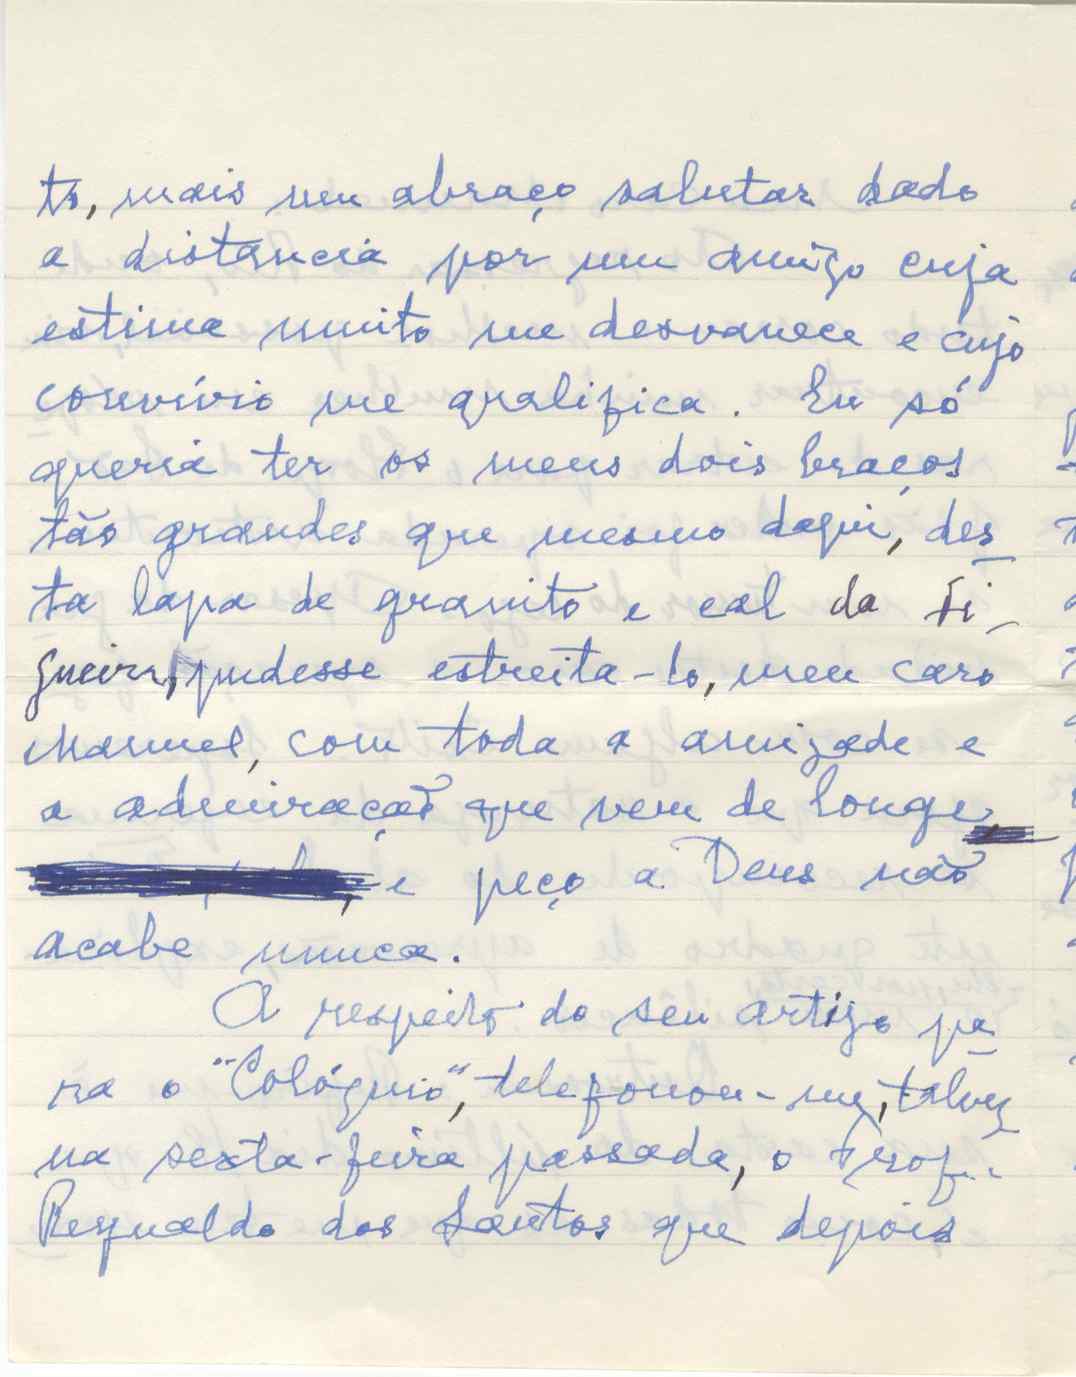 to, mais um abraço salutar dado
a distância por um amigo cuja
estima muito me desvanece e cujo
convívio me qualifica. Eu só
queria ter os meus dois braços
tão grandes que mesmo daqui, des
ta lapa de granito e cal da Fi-
gueira, pudesse estreita-lo, meu caro
Manuel, com toda a amizade e
a admiração que vem de longe
, e peço a Deus não
acabe nunca.
A respeito do seu artigo pa
ra o "Colóquio", telefonou-me, talvez
na sexta-feira passada, o Prof.
Reynaldo dos Santos que depois